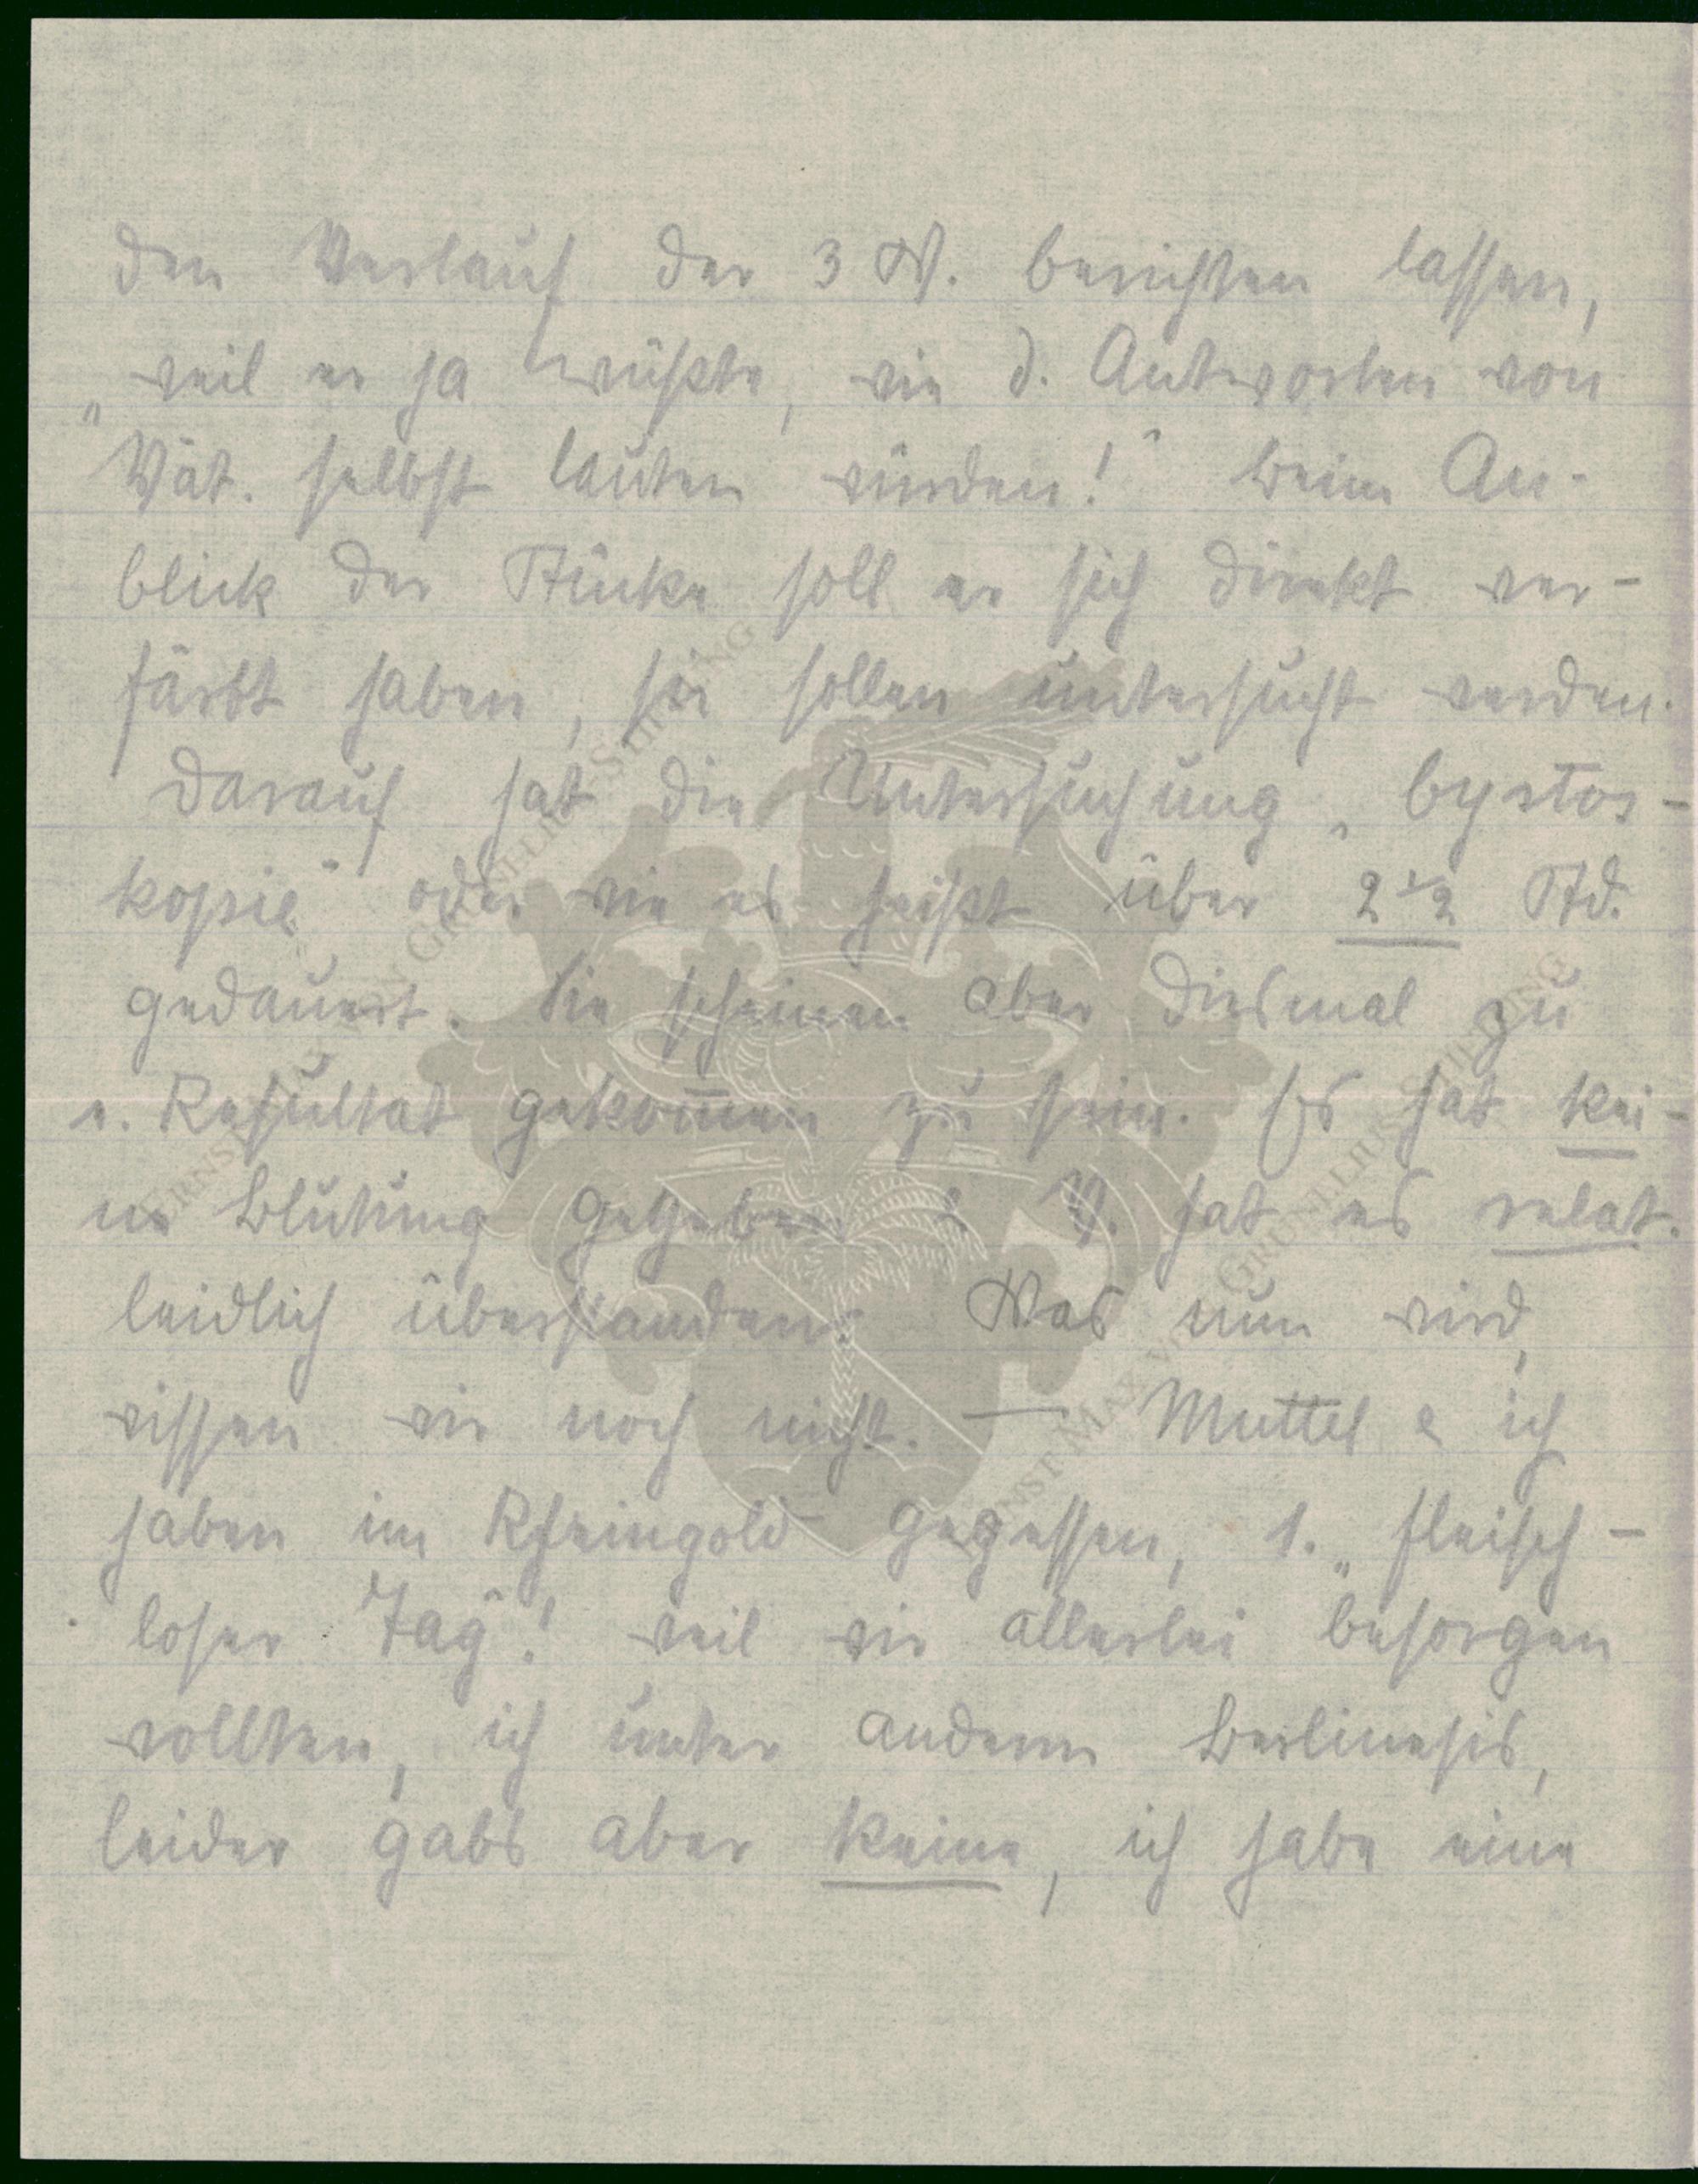 den Verlauf der 3 W. berichten lassen,
„weil er ja wüßte, wie d. Antworten von
Vät. selbst lauten würden!“ Beim An-
blick der Stücke soll er sich direkt ver-
färbt haben, sie sollen untersucht werden.
Darauf hat die Untersuchung „bystos-
kopie“ oder wie es heißt über 2 1/2 Std.
gedauert. Sie scheinen aber diesmal zu
e. Resultat gekommen zu sein. Es hat kei-
ne Blutung gegeben & V. hat es relat.
leidlich überstanden. Was nun wird,
wissen wir noch nicht. — Muttel & ich
haben im Rheingold gegessen, 1. „fleisch-
loser Tag“! weil wir allerlei besorgen
wollten, ich unter anderm Berlinesis,
leider gabs aber keine, ich habe eine